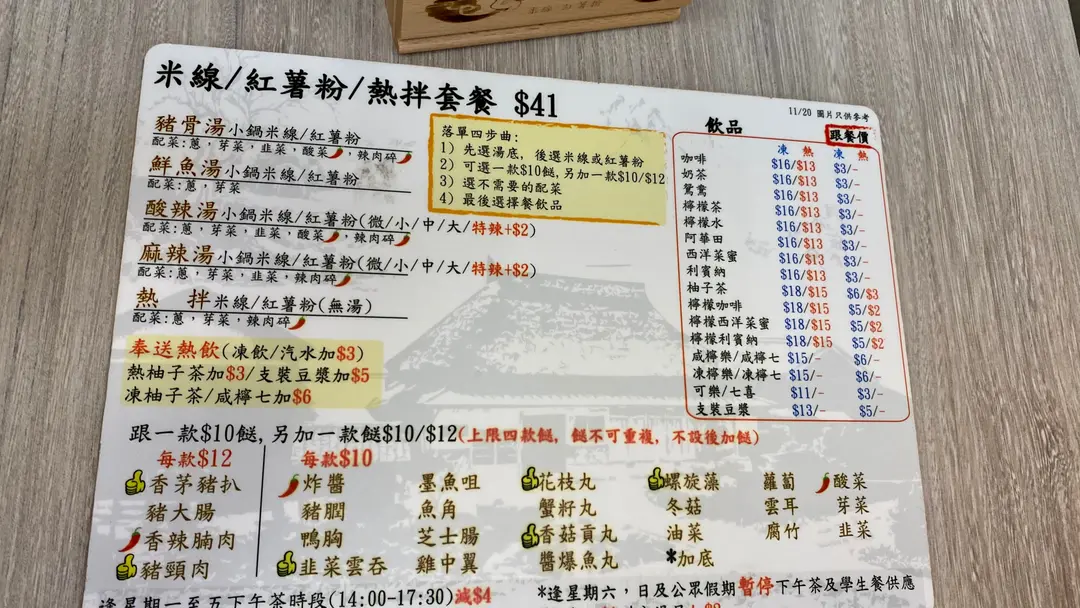 米線/紅薯粉/熱拌套餐 $41
11/20 圖片只供參考
豬骨湯小鍋米線/紅薯粉
配菜:蔥，芽菜，韭菜，酸菜，辣肉碎
鮮魚湯小鍋米線/紅薯粉
配菜:蔥，芽菜
酸辣湯小鍋米線/紅薯粉(微/小/中/大/特辣+$2)
配菜:蔥，芽菜，韭菜，酸菜，辣肉碎
麻辣湯小鍋米線/紅薯粉(微/小/中/大/特辣+$2)
配菜:蔥，芽菜，韭菜，辣肉碎
熱 拌米線/紅薯粉(無湯)
配菜:蔥，芽菜，辣肉碎
奉送熱飲(凍飲/汽水加$3)
熱柚子茶加$3/支裝豆漿加$5
凍柚子茶/咸檸七加$6
落單四步曲:
1) 先選湯底, 後選米線或紅薯粉
2) 可選一款$10餸,另加一款$10/$12
3) 選不需要的配菜
4) 最後選擇餐飲品
飲品
跟餐價
凍 熱 凍 熱
咖啡 $16/$13 $3/-
奶茶 $16/$13 $3/-
鴛鴦 $16/$13 $3/-
檸檬茶 $16/$13 $3/-
檸檬水 $16/$13 $3/-
阿華田 $16/$13 $3/-
西洋菜蜜 $16/$13 $3/-
利賓納 $16/$13 $3/-
柚子茶 $18/$15 $6/$3
檸檬咖啡 $18/$15 $5/$2
檸檬西洋菜蜜 $18/$15 $5/$2
檸檬利賓納 $18/$15 $5/$2
咸檸樂/咸檸七 $15/- $6/-
凍檸樂/凍檸七 $15/- $6/-
可樂/七喜 $11/- $3/-
支裝豆漿 $13/- $5/-
跟一款$10餸,另加一款餸$10/$12(上限四款餸, 餸不可重複, 不設後加餸)
每款$12 每款$10
香茅豬扒 炸醬 墨魚咀 花枝丸 螺旋藻 蘿蔔 酸菜
豬大腸 豬膶 魚角 蟹籽丸 冬菇 雲耳 芽菜
香辣腩肉 鴨胸 芝士腸 香菇貢丸 油菜 腐竹 韭菜
豬頸肉 韭菜雲吞 雞中翼 醬爆魚丸 *加底
逢星期一至五下午茶時段(14:00-17:30)減$4
*逢星期六，日及公眾假期暫停下午茶及學生餐供應